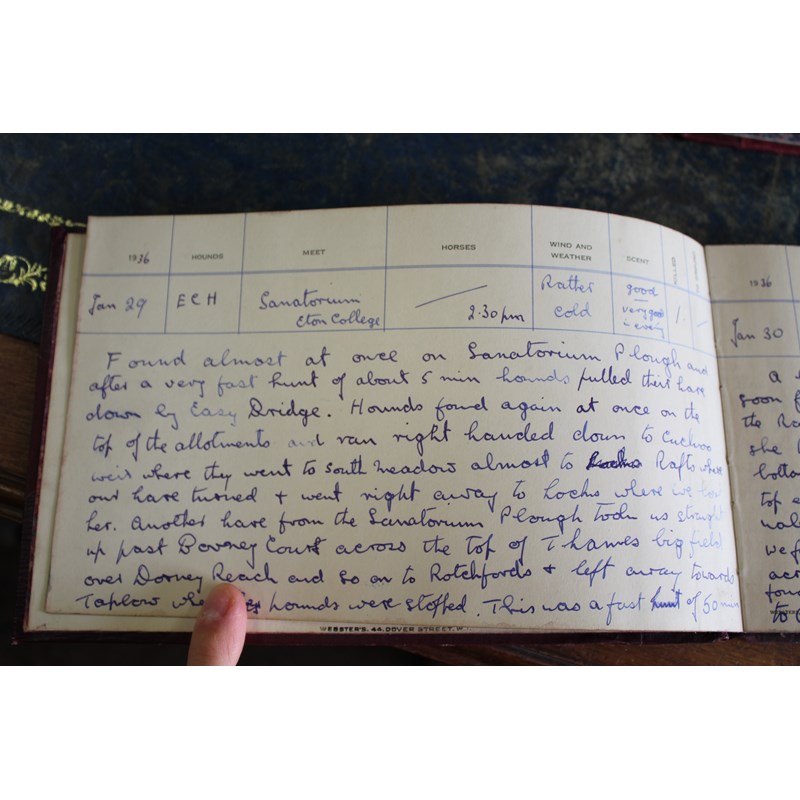 1936 HOUNDS MEET HORSES WIND AND WEATHER SCENT
Jan 29 ECH Sanatorium Eton College 2.30 pm Rather cold good very good in evening 1.
Found almost at once on Sanatorium Plough and
after a very fast hunt of about 5 min hounds pulled their hare
down by Easy Bridge. Hounds found again at once on the
top of the allotments and ran right handed down to Cuckoo
weir where they went to South meadow almost to Rafts where
our hare turned & went right away to Locks where we lost
her. Another hare from the Sanatorium Plough took us straight
up past Boveney Court across the top of Thames big field
over Dorney Reach and so on to Rotchfords & left away towards
Taplow hounds were stopped. This was a fast hunt of 50 min
WEBSTER'S, 44, DOVER STREET, W.
1936
Jan 30
a
soon
the
she
bottom
top